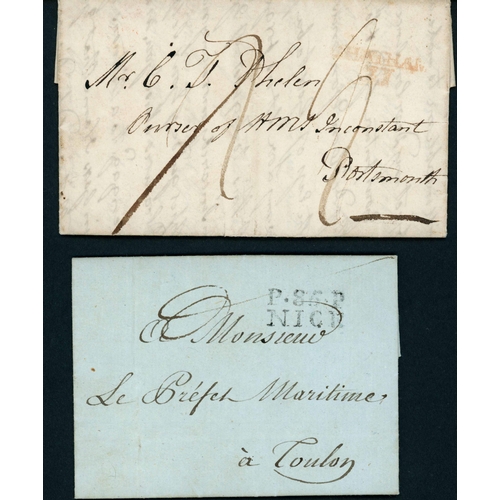 Mr. C. T. Phelen
Purser of HMS Inconstant
Portsmouth
P.86.P
NICE
A Monsieur
Le Préfet Maritime
à Toulon